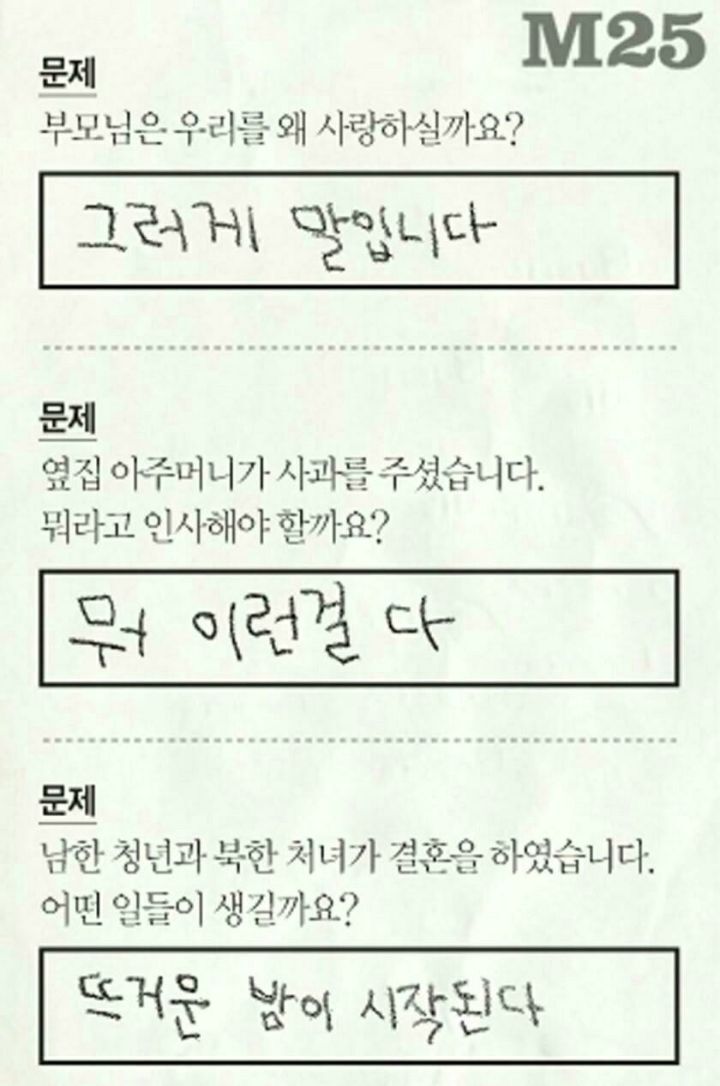 M25
문제
부모님은 우리를 왜 사랑하실까요?
그러게 말입니다
문제
옆집 아주머니가 사과를 주셨습니다.
뭐라고 인사해야 할까요?
뭐 이런걸 다
문제
남한 청년과 북한 처녀가 결혼을 하였습니다.
어떤 일들이 생길까요?
뜨거운 밤이 시작된다